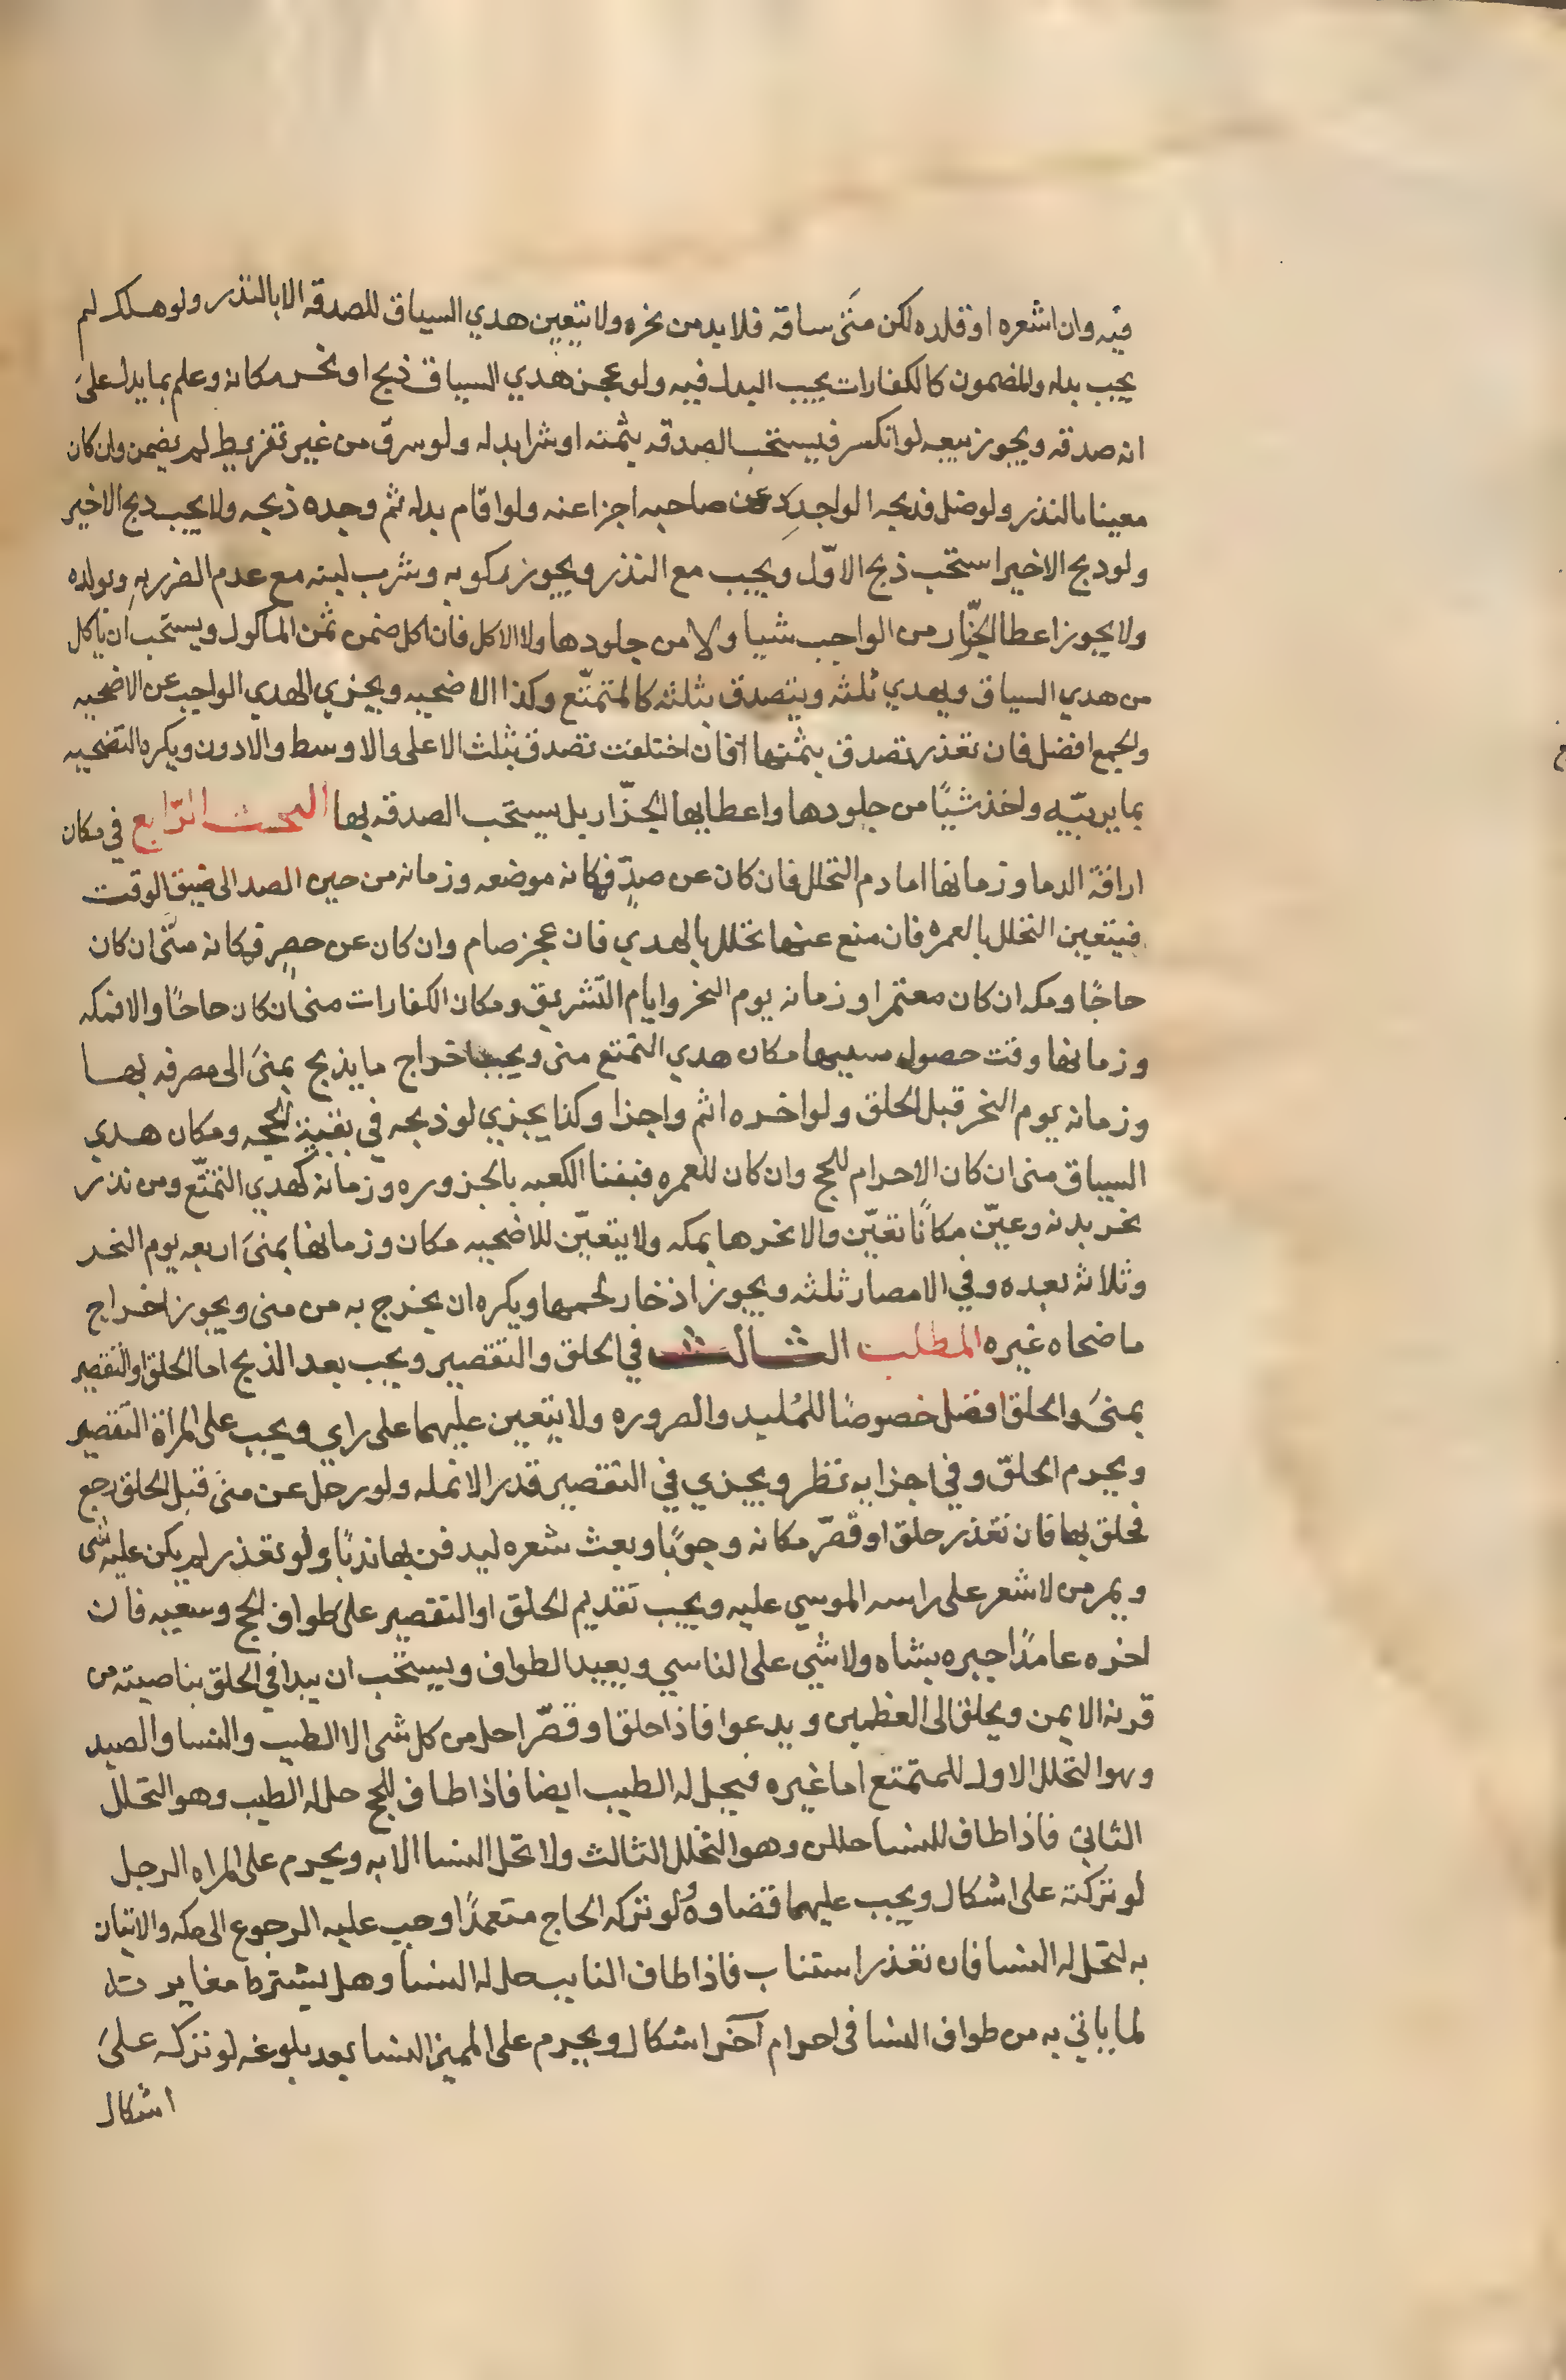 فيه وان اشعره او قلده لكن متى ساقه فلابد من نحره ولا يتعين هدي السياق للصدقه الا بالنذر ولو هلك لم
يجب بدله والمضمون كالكفارات يجب البدل فيه ولو عجز هدي السياق ذبح او نحر مكانه وعلم بما يدل على
انه صدقه ويجوز بيعه لو انكسر فيستحب الصدقه بثمنه او شرا بدله ولو سرق من غير تفريط لم يضمن وان كان
معينا بالنذر ولو ضل فذبحه الواجد عن صاحبه اجزا عنه ولو اقام بدله ثم وجده ذبحه ولا يجب ذبح الاخير
ولو ذبح الاخير استحب ذبح الاوّل ويجب مع النذر ويجوز ركوبه وشرب لبنه مع عدم الضرر به وبولده
ولا يجوز اعطا الجزّار من الواجب شيا ولا من جلودها ولا الاكل فان اكل ضمن ثمن الماكول ويستحب ان ياكل
من هدي السياق ويهدي ثلثه ويتصدق بثلثه كالمتمتّع وكذا الاضحيه ويجزي الهدي الواجب عن الاضحيه
والجمع افضل فان تعذر تصدق بثمنها فان اختلفت تصدق بثلث الاعلى والاوسط والادون ويكره التضحيه
بما يربيّه واخذ شيًا من جلودها واعطايها الجزّار بل يستحب الصدقه بها البحث الرّابع في مكان
اراقة الدما وزمانها اما دم التحلل فان كان عن صدٍّ فمكانه موضعه وزمانه من حين الصد الى ضيق الوقت
فيتعين التحلل بالعمره فان منع عنها تحلل بالهدي فان عجز صام وان كان عن حصرٍ فمكانه منًى ان كان
حاجًا ومكه ان كان معتمرا وزمانه يوم النحر وايام التشريق ومكان الكفارات منى ان كان حاجًا والا فمكه
وزمانها وقت حصول سببها مكان هدي التمتع منى ويجب اخراج ما يذبح بمنى الى مصرفه بها
وزمانه يوم النحر قبل الحلق ولو اخره اثم واجزا وكذا يجزي لو ذبحه في بقية الحجه ومكان هدي
السياق منى ان كان الاحرام للحج وان كان للعمره فبفنا الكعبه بالحزوره وزمانه كهدي التمتّع ومن نذر
نحر بدنه وعيّن مكانًا تعيّن والا نحرها بمكه ولا يتعيّن للاضحيه مكان وزمانها بمنى اربعه يوم النحر
وثلاثه بعده وفي الامصار ثلثه ويجوز اذخار لحمها ويكره ان يخرج به من منى ويجوز اخراج
ما ضحاه غيره المطلب الثالث في الحلق والتقصير ويجب بعد الذبح اما الحلق او التقصير
بمنى والحلق افضل خصوصًا للملبد والصروره ولا يتعين عليهما على راي ويجب على المراة التقصير
ويحرم الحلق وفي اجزايه نظر ويجزي في التقصير قدر الانمله ولو رحل عن منى قبل الحلق رجع
فحلق بها فان تعذر حلق او قصّر مكانه وجوبًا وبعث شعره ليدفن بها ندبًا ولو تعذر لم يكن عليه شي
ويمر من لا شعر على راسه الموسي عليه ويجب تقديم الحلق او التقصير على طواف الحج وسعيه فان
اخره عامدًا جبره بشاه ولا شي على الناسي ويعيد الطواف ويستحب ان يبدا في الحلق بناصيته من
قرنه الايمن ويحلق الى العظمين ويدعوا فاذا حلق او قصّر احل من كل شي الا الطيب والنسا والصيد
وهو التحلل الاول للمتمتع اما غيره فيحل له الطيب ايضا فاذا طاف للحج حل له الطيب وهو التحلل
الثاني فاذا طاف للنسا حللن وهو التحلل الثالث ولا تحل النسا الا به ويحرم على المراه الرجل
لو تركته على اشكال ويجب عليهما قضاوه ولو تركه الحاج متعمدًا وجب عليه الرجوع الى مكه والاتيان
به لتحل له النسا فان تعذر استناب فاذا طاف النايب حل له النسا وهل يشترط مغايرته
لما ياتي به من طواف النسا في احرام آخر اشكال ويحرم على المميز النسا بعد بلوغه لو تركه على
اشكال